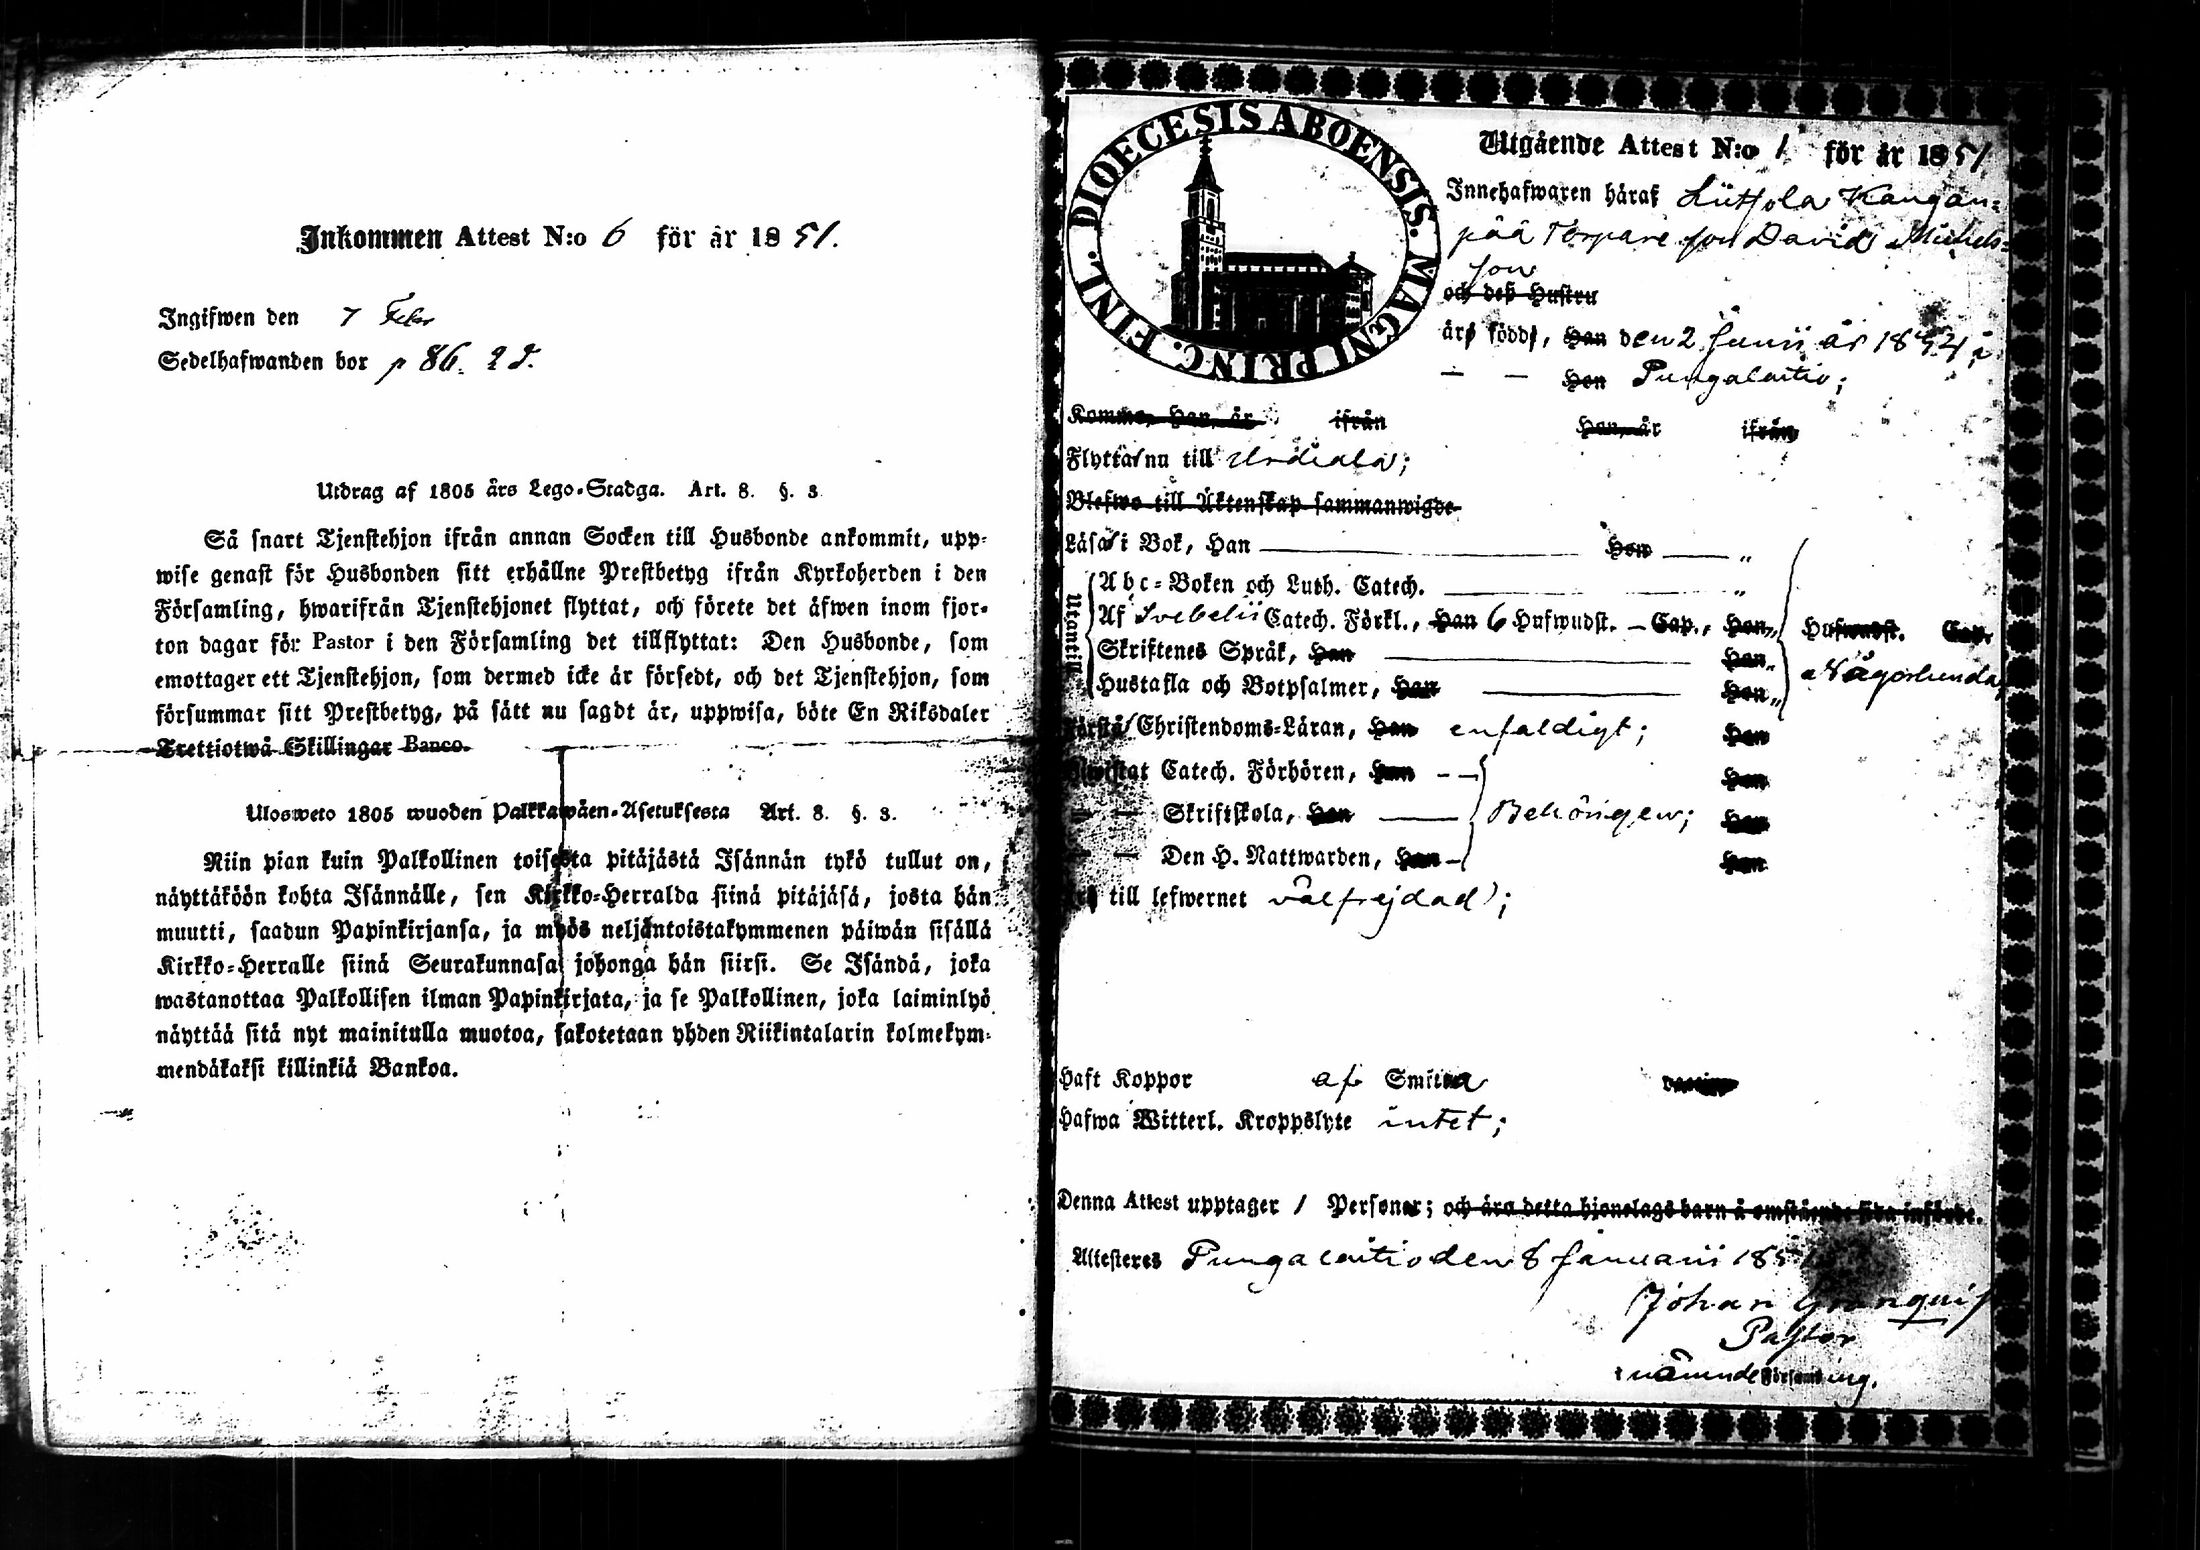 Inkommen Attest N:o 6 för år 1851.
Ingifwen den 7 Febr
Sedelhafwanden bor p 86. 2 d.
Utdrag af 1805 års Lego-Stadga. Art. 8. §. 3
Så snart Tjenstehjon ifrån annan Socken till Husbonde ankommit, upp-
wise genast för Husbonden sitt erhållne Prestbetyg ifrån Kyrkoherden i den
Församling, hwarifrån Tjenstehjonet flyttat, och förete det äfwen inom fjor-
ton dagar för Pastor i den Församling det tillflyttat: Den Husbonde, som
emottager ett Tjenstehjon, som dermed icke är försedt, och det Tjenstehjon, som
försummar sitt Prestbetyg, på sätt nu sagdt är, uppwisa, böte En Riksdaler
Trettiotwå Skillingar Banco.
Ulosweto 1805 wuoden Palkkawäen-Asetuksesta Art. 8. §. 3.
Niin pian kuin Palkollinen toisesta pitäjästä Isännän tykö tullut on,
näyttäköön kohta Isännälle, sen Kirkko-Herralda siinä pitäjäsä, josta hän
muutti, saadun Papinkirjansa, ja myös neljäntoistakymmenen päiwän sisällä
Kirkko-Herralle siinä Seurakunnasa johonga hän siirsi. Se Isändä, joka
wastanottaa Palkollisen ilman Papinkirjata, ja se Palkollinen, joka laiminlyö
näyttää sitä nyt mainitulla muotoa, sakotetaan yhden Riikintalarin kolmekym-
mendäkaksi killinkiä Bankoa.
DIOECESIS ABOENSIS. MAGNI PRINC. FINL.
Utgående Attest N:o 1 för år 1851
Innehafwaren häraf Kangan-
pää Torpare son David Michels-
son
och deß Hustru
äro födde, Han den 2 Junii år i
— — Hon Pungalaitio;
Komme, Han, år ifrån Hon, år ifrån
Flytta nu till Urdiala;
Blefwo till Äktenskap sammanwigde
Läsa i Bok, Han Hon „
Utantill
Abc-Boken och Luth. Catech. „
Af Svebelii Catech. Förkl., Han 6 Hufwudst. — Cap., Hon „ Hufwudst. Cap.
Skriftenes Språk, Han Hon „ Någorlunda,
Hustafla och Botpsalmer, Han Hon „
Förstå Christendoms-Läran, Han enfaldigt; Hon
Bewistat Catech. Förhören, Han Hon
— — Skriftskola, Han Behörigen; Hon
— — Den H. Nattwarden, Han Hon
till lefwernet välfrejdad;
Haft Koppor af Smitta
Hafwa Witterl. Kroppslyte intet;
Denna Attest upptager 1 Personer; och äro detta hjonelags barn å omstående sida införde.
Attesteres Pungalaitio den 8 Januarii 1851
Johan Granqvist
Pastor
i nämnde Församling.